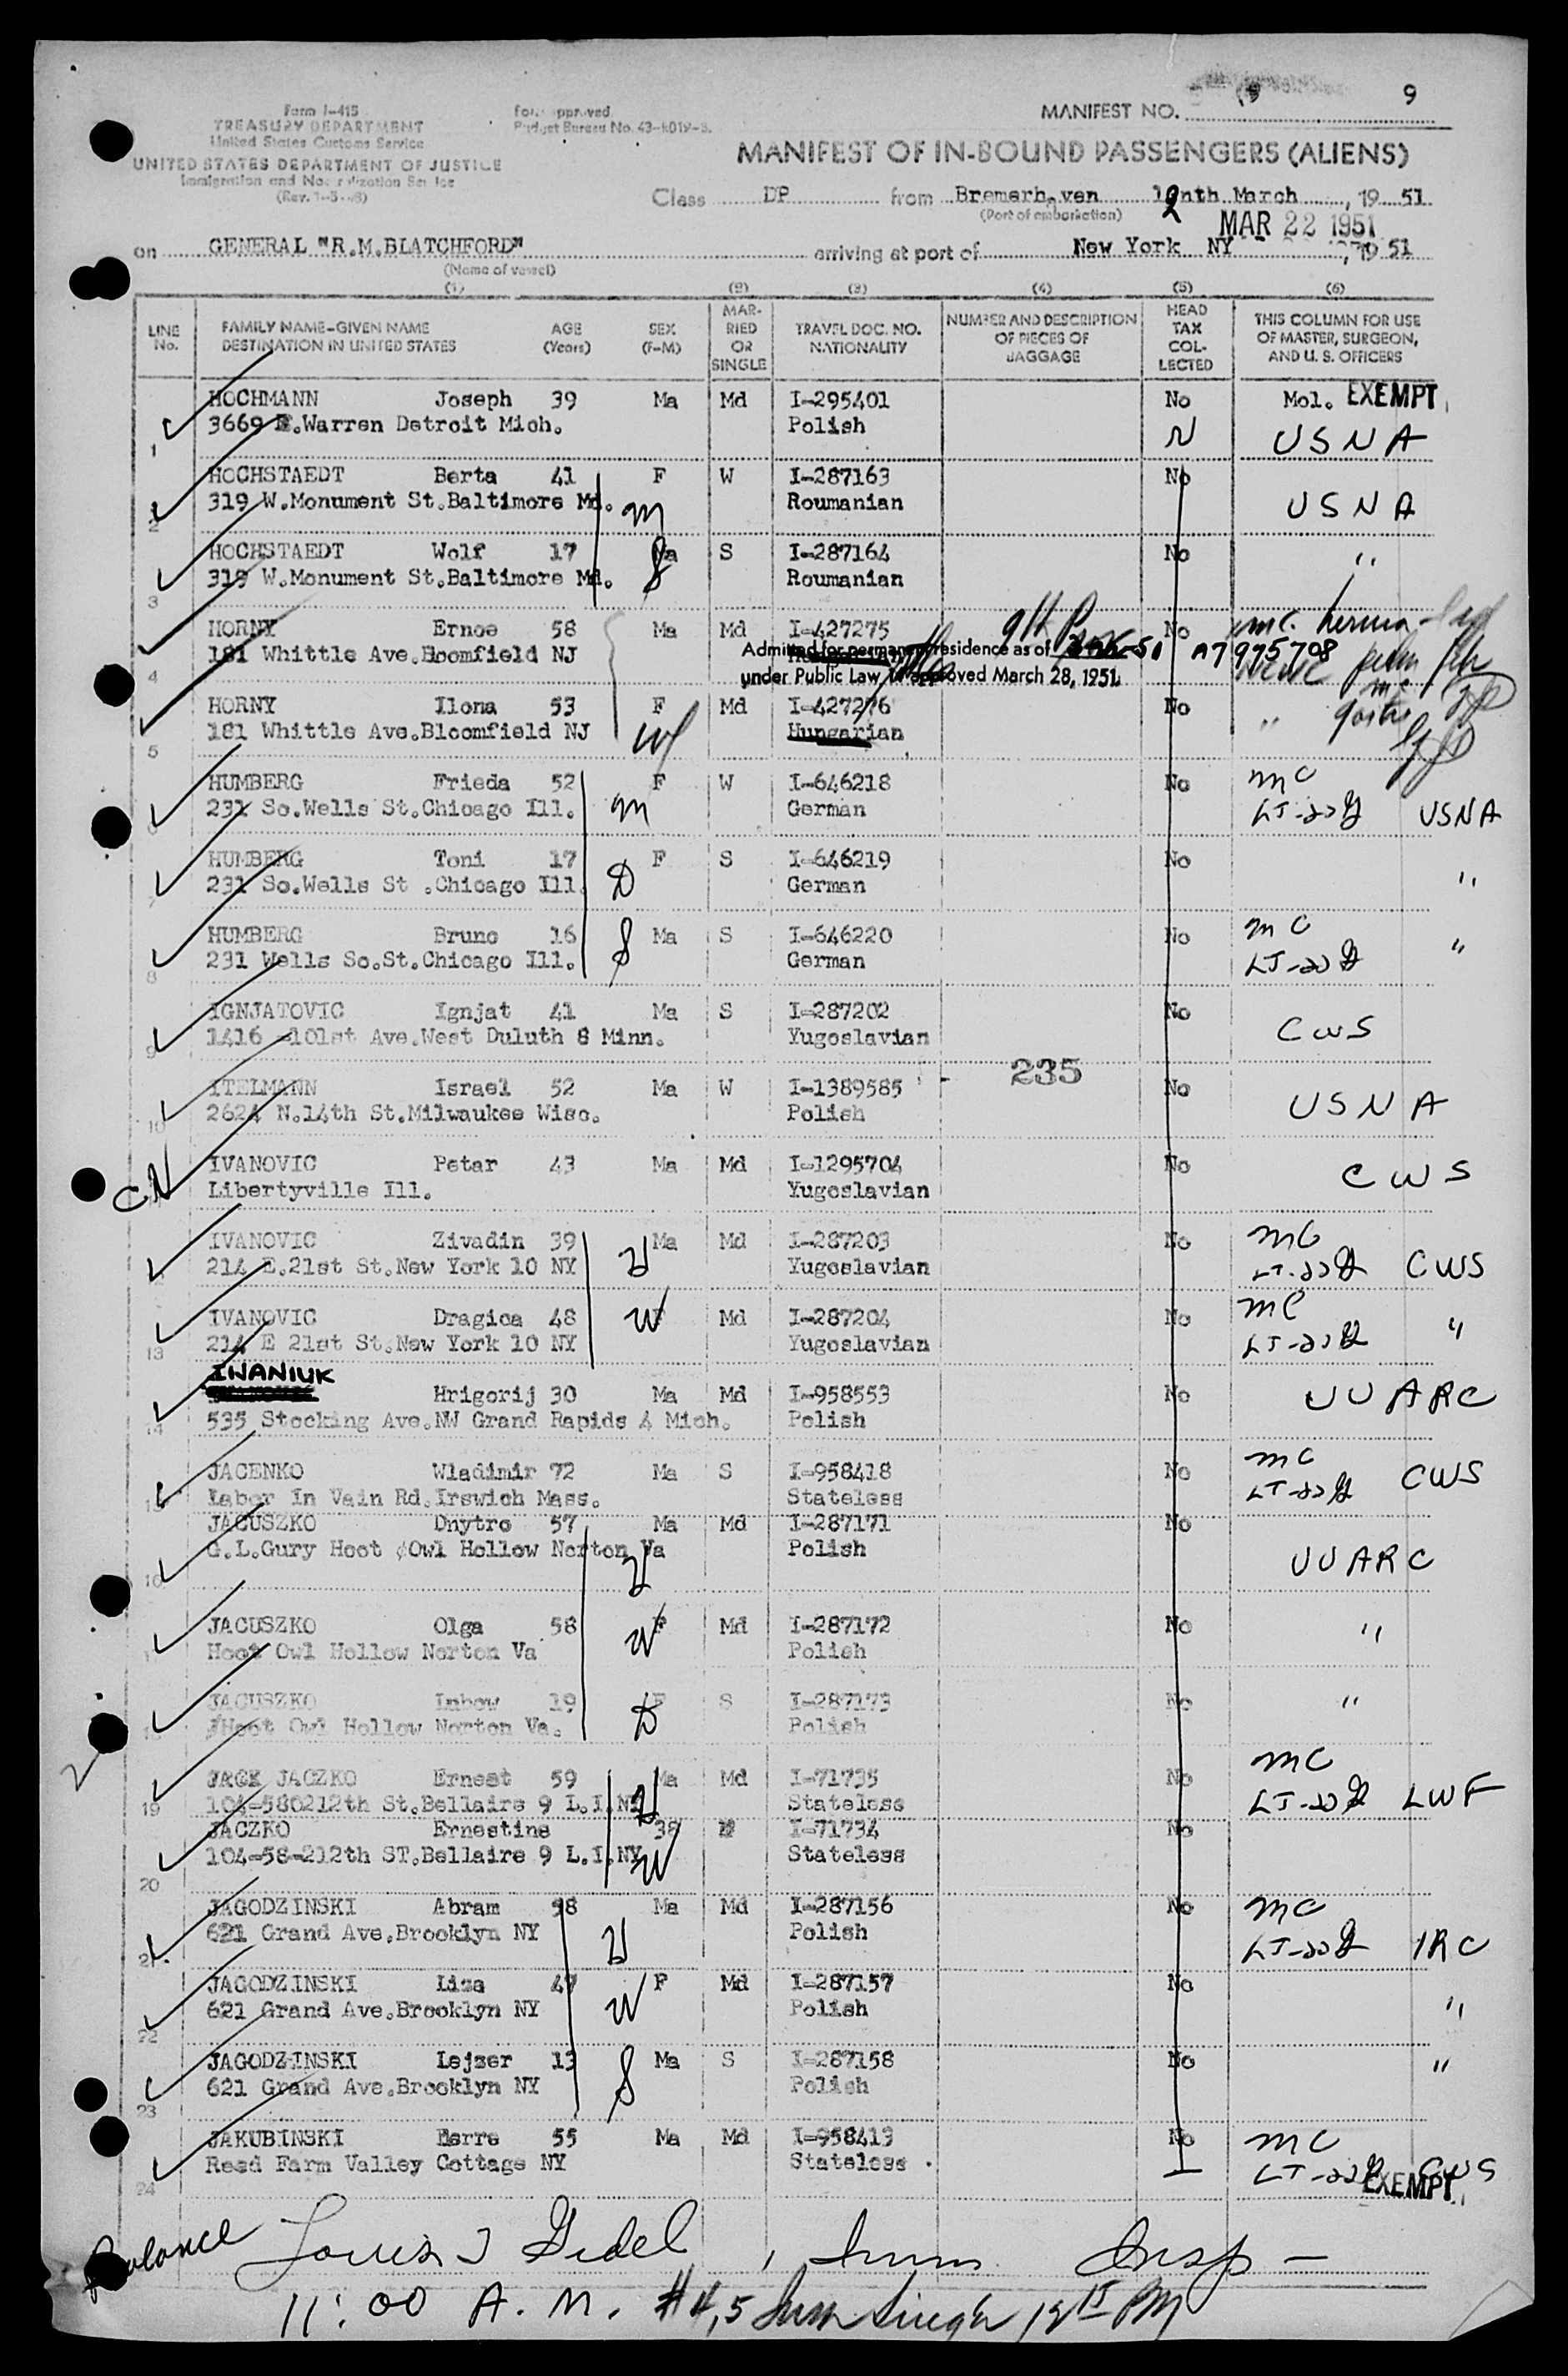 9
Form I-415
TREASURY DEPARTMENT
United States Customs Service
UNITED STATES DEPARTMENT OF JUSTICE
Immigration and Naturalization Service
approved.
Budget Bureau No.
MANIFEST NO.
MANIFEST OF IN-BOUND PASSENGERS (ALIENS)
Class DP from Bremerhaven March, 19 51
(Port of embarkation)
MAR 22 1951
on GENERAL "R.M.BLATCHFORD" arriving at port of New York NY, 19 51
(Name of vessel)
(1) (2) (3) (4) (5) (6)
LINE No. FAMILY NAME-GIVEN NAME DESTINATION IN UNITED STATES AGE (Years) SEX (F-M) MAR-RIED OR SINGLE TRAVEL DOC. NO. NATIONALITY NUMBER AND DESCRIPTION OF PIECES OF BAGGAGE HEAD TAX COL-LECTED THIS COLUMN FOR USE OF MASTER, SURGEON, AND U. S. OFFICERS
HOCHMANN Joseph 39 Ma Md I-295401 No Mol. EXEMPT
1 3669 E.Warren Detroit Mich. Polish N USNA
HOCHSTAEDT Berta 41 F W I-287163 No
2 319 W.Monument St.Baltimore Md. m Roumanian USNA
HOCHSTAEDT Wolf 17 Ma S I-287164 No "
3 319 W.Monument St.Baltimore Md. Roumanian
HORNY Ernoe 58 Ma Md I-427275 No mc. hernia
4 181 Whittle Ave.Boomfield NJ
Admitted for permanent residence as of A7975708
under Public Law approved March 28, 1951.
HORNY Ilona 53 F Md I-427276 No "
5 181 Whittle Ave.Bloomfield NJ W Hungarian
HUMBERG Frieda 52 F W I-646218 No mc
231 So.Wells St.Chicago Ill. m German USNA
HUMBERG Toni 17 F S I-646219 No
231 So.Wells St .Chicago Ill. D German "
HUMBERG Bruno 16 S Ma S I-646220 No mc
8 231 Wells So.St.Chicago Ill. German "
IGNJATOVIC Ignjat 41 Ma S I-287202 No
9 1416 -101st Ave.West Duluth 8 Minn. Yugoslavian CWS
235
ITELMANN Israel 52 Ma W I-1389585 No
10 2624 N.14th St.Milwaukee Wisc. Polish USNA
IVANOVIC Petar 43 Ma Md I-1295704 No
Libertyville Ill. Yugoslavian CWS
IVANOVIC Zivadin 39 Ma Md I-287203 No mc
214 E.21st St.New York 10 NY H Yugoslavian CWS
IVANOVIC Dragica 48 W Md I-287204 No mc
13 214 E 21st St.New York 10 NY Yugoslavian "
IWANIUK
Hrigorij 30 Ma Md I-958553 No UUARC
14 535 Stocking Ave.NW Grand Rapids 4 Mich. Polish
JACENKO Wladimir 72 Ma S I-958418 No mc
Labor In Vain Rd.Irswich Mass. Stateless CWS
JACUSZKO Dnytro 57 Ma Md I-287171 No
16 G.L.Gury Hoot Owl Hollow Norton Va H Polish UUARC
JACUSZKO Olga 58 F W Md I-287172 No "
Hoot Owl Hollow Norton Va Polish
JACUSZKO 19 F S I-287173 No "
Hoot Owl Hollow Norton Va. D Polish
JACZKO Ernest 59 Ma Md I-71735 No mc
19 104-580212th St.Bellaire 9 L.I.NY H Stateless LWF
JACZKO Ernestine 38 I-71734 No
20 104-58-212th ST.Bellaire 9 L.I.NY W Stateless
JAGODZINSKI Abram 58 Ma Md I-287156 No mc
21 621 Grand Ave.Brooklyn NY H Polish IRC
JAGODZINSKI Lisa 47 F Md I-287157 No
22 621 Grand Ave.Brooklyn NY W Polish "
JAGODZINSKI Lejzer 13 Ma S I-287158 No "
23 621 Grand Ave.Brooklyn NY S Polish
JAKUBINSKI 55 Ma Md I-958413 No mc
24 Reed Farm Valley Cottage NY Stateless CWS
EXEMPT
Balance Louis J Insp -
11:00 A.M. #4,5